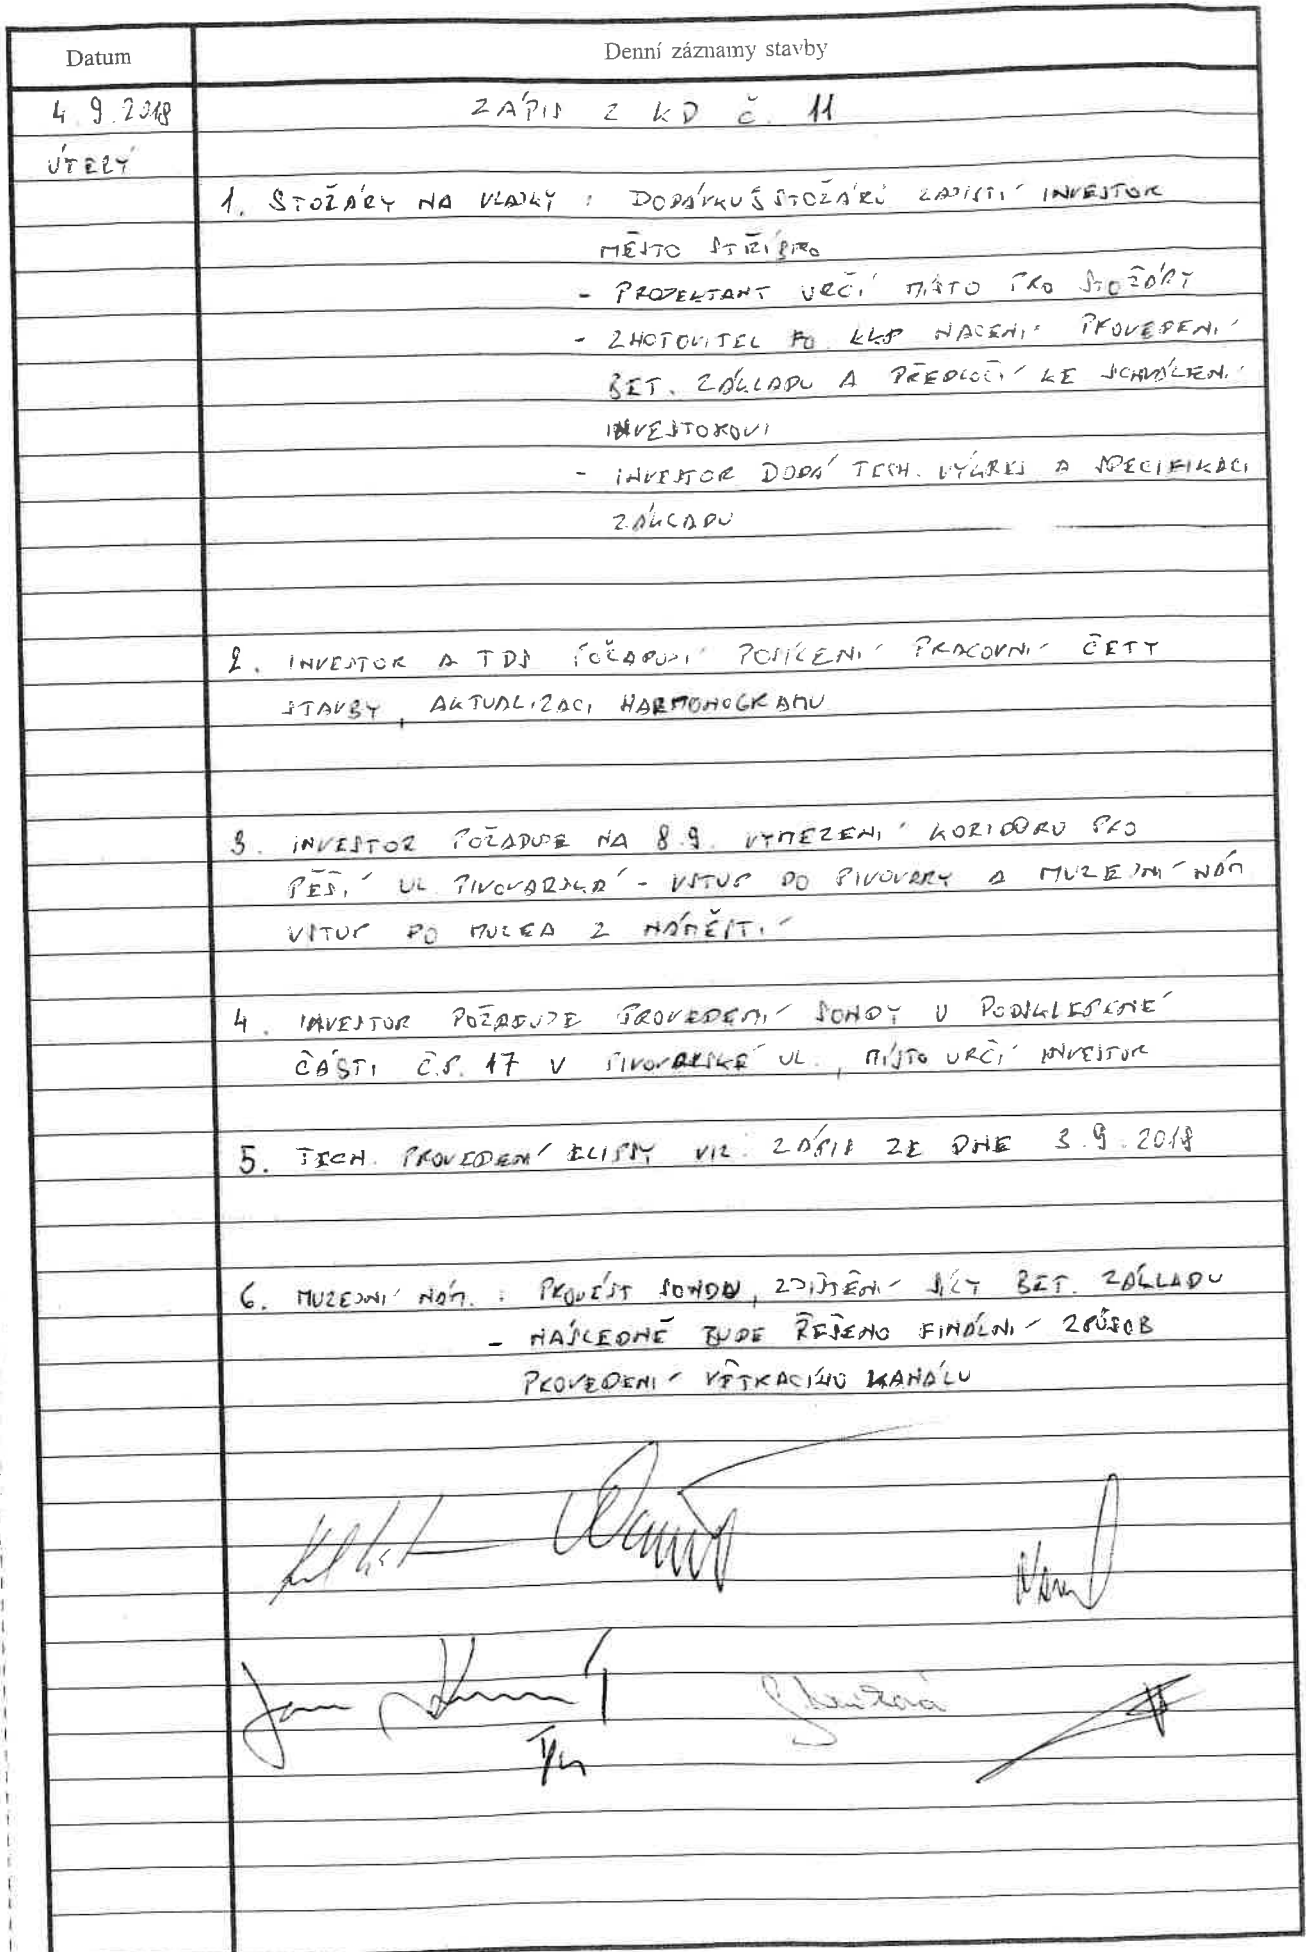 Datum
Denní záznamy stavby
4.9.2018
ZÁPIS Z KD Č. 11
ÚTERÝ
1. STOŽÁRY NA VLAJKY : DODÁVKU 5 STOŽÁRŮ ZAJISTÍ INVESTOR
MĚSTO STŘÍBRO
- PROJEKTANT URČÍ MÍSTO PRO STOŽÁRY
- ZHOTOVITEL NACENÍ PROVEDENÍ
BET. ZÁKLADU A PŘEDLOŽÍ KE SCHVÁLENÍ
INVESTOROVI
- INVESTOR DODÁ TECH. VÝKRES A SPECIFIKACI
ZÁKLADU
2. INVESTOR A TDS POŽADUJÍ POSÍLENÍ PRACOVNÍ ČETY
STAVBY, AKTUALIZACI HARMONOGRAMU
3. INVESTOR POŽADUJE NA 8.9. VYMEZENÍ KORIDORU PRO
PĚŠÍ UL. PIVOVARSKÁ - VSTUP DO PIVOVARY A MUZEJNÍ NÁM
VSTUP DO MUZEA Z NÁMĚSTÍ
4. INVESTOR POŽADUJE PROVEDENÍ SONDY U PODSKLEPENÉ
ČÁSTI Č.P. 17 V PIVOVARSKÉ UL., MÍSTO URČÍ INVESTOR
5. TECH. PROVEDENÍ ELIPSY VIZ. ZÁPIS ZE DNE 3.9.2018
6. MUZEJNÍ NÁM. : PROVÉST SONDU, ZJIŠTĚNÍ SÍLY BET. ZÁKLADU
- NÁSLEDNĚ BUDE ŘEŠENO FINÁLNÍ ZPŮSOB
PROVEDENÍ VĚTRACÍHO KANÁLU